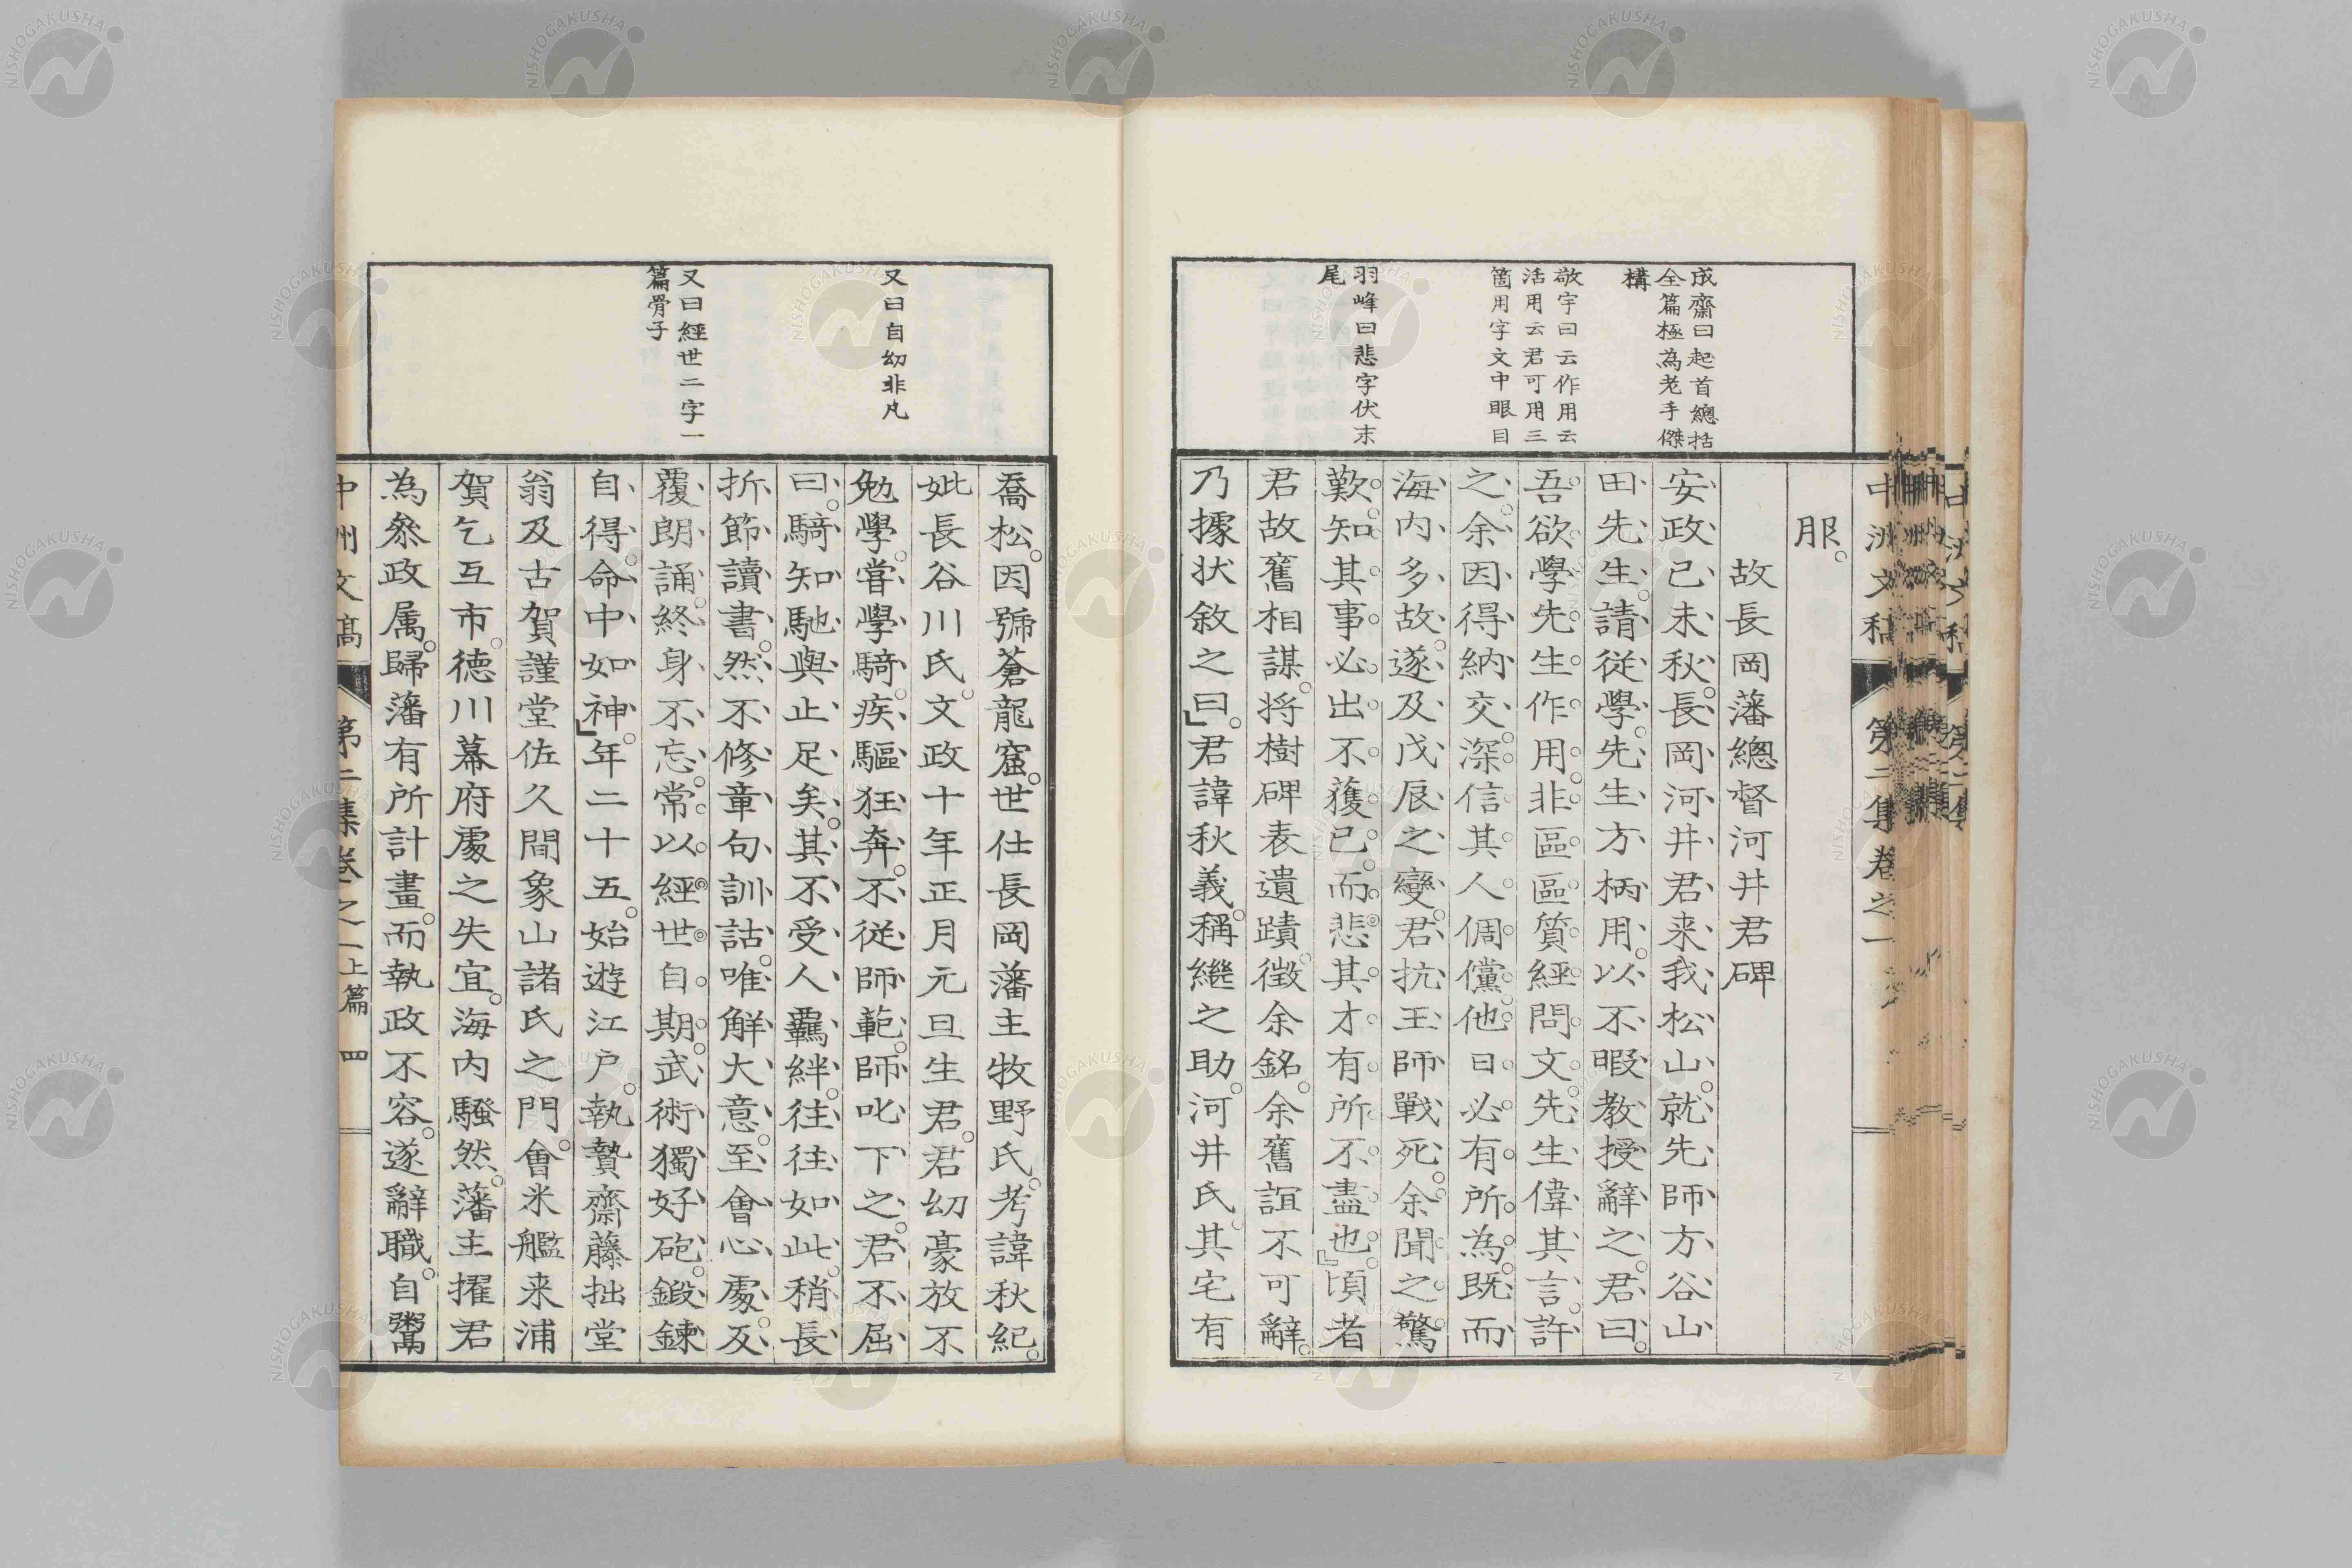 成齋曰起首總括
全篇極為老手傑
構
敬宇曰云作用云
活用云君可用三
箇用字文中眼目
羽峰曰悲字伏末
尾
服。
故長岡藩總督河井君碑
安政己未秋。長岡河井君来我松山。就先師方谷山
田先生。請從學。先生方柄用。以不暇教授辭之。君曰。
吾欲學先生作用。非區區質經問文。先生偉其言。許
之。余因得納交。深信其人倜儻。他日必有所為。既而
海内多故。遂及戊辰之變。君抗王師戰死。余聞之驚
歎。知其事必出不獲已。而悲其才有所不盡也。』頃者
君故舊相謀。将樹碑表遺蹟。徵余銘。余舊誼不可辭。
乃據状敘之曰。』君諱秋義。稱継之助。河井氏。其宅有
中洲文稿 第二集卷之一
又曰自幼非凡
又曰經世二字一
篇骨子
喬松。因號蒼龍窟。世仕長岡藩主牧野氏。考諱秋紀。
妣長谷川氏。文政十年正月元旦生君。君幼豪放不
勉學。嘗學騎。疾驅狂奔。不従師範。師叱下之。君不屈
曰。騎知馳與止足矣。其不受人羈絆。往往如此。稍長
折節讀書。然不修章句訓詁。唯解大意。至會心處。反
覆朗誦。終身不忘。常以經世自期。武術獨好砲。鍛鍊
自得。命中如神。』年二十五。始遊江户。執贄齋藤拙堂
翁及古賀謹堂佐久間象山諸氏之門。會米艦来浦
賀乞互市。徳川幕府處之失宜。海内騷然。藩主擢君
為叅政属。歸藩有所計畫。而執政不容。遂辭職。自鬻
中洲文稿 第二集卷之一 上篇 四
NISHOGAKUSHA